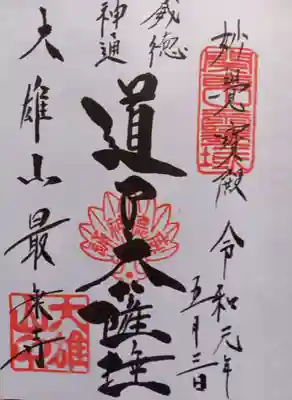 妙覺寶殿
令和元年
五月三日
威徳
神通
道了大薩埵
大雄山最乗寺